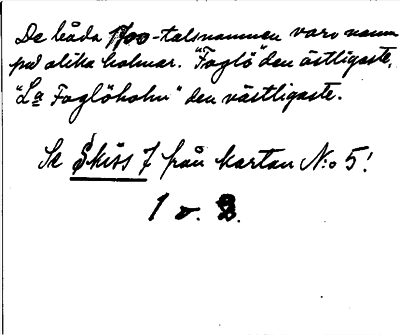 De båda 1700-talsnamnen varo namn
på olika holmar. "Foglö" den östligaste,
"La Foglöholm" den västligaste.
Se Skiss 7 från kartan N:o 5!
1 o. 2.